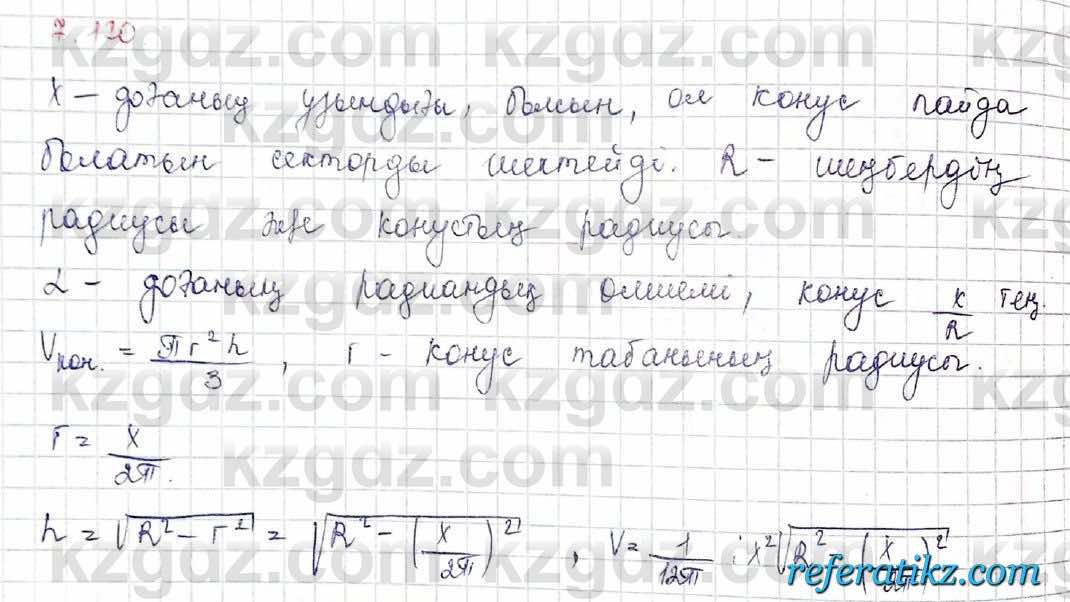 7.120
х – доғаның ұзындығы, болсын, ол конус пайда
болатын секторды шектейді. R – шеңбердің
радиусы және конустың радиусы.
α – доғаның радиандық өлшемі, конус x/R тең.
Vкон. = πr²h/3, r – конус табанының радиусы.
r = x/2π.
h = √(R² – r²) = √(R² – (x/2π)²), V = 1/12π · x² √(R² – (x/2π)²)
kzgdz.com
referatikz.com